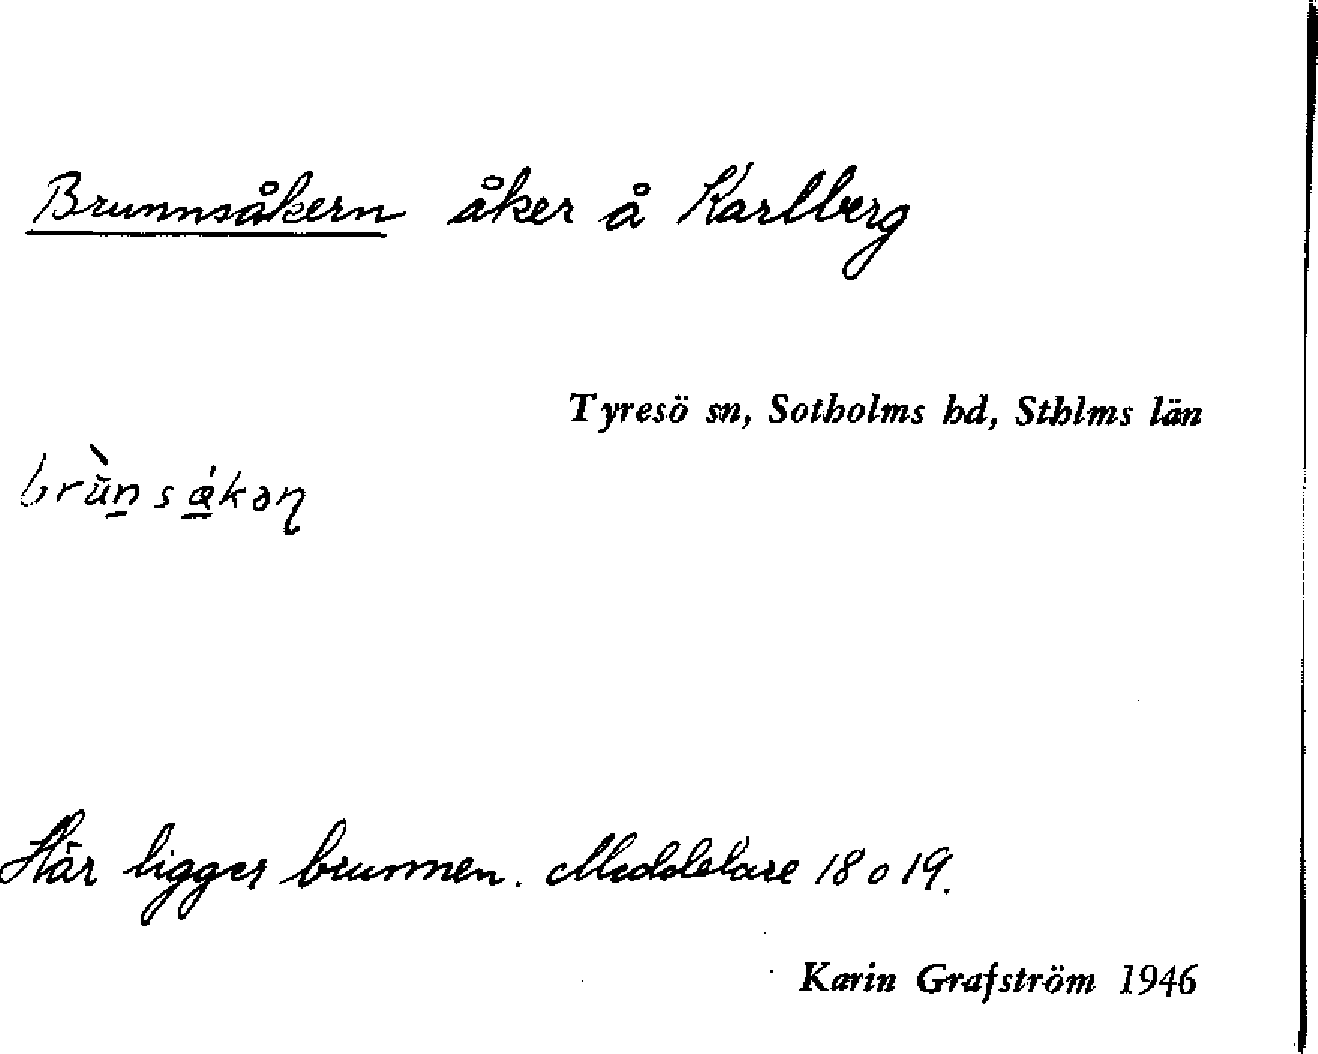 Brunnsåkern åker å Karlberg
Tyresö sn, Sotholms hd, Sthlms län
Här ligger brunnen. Meddelare 18 o 19.
Karin Grafström 1946